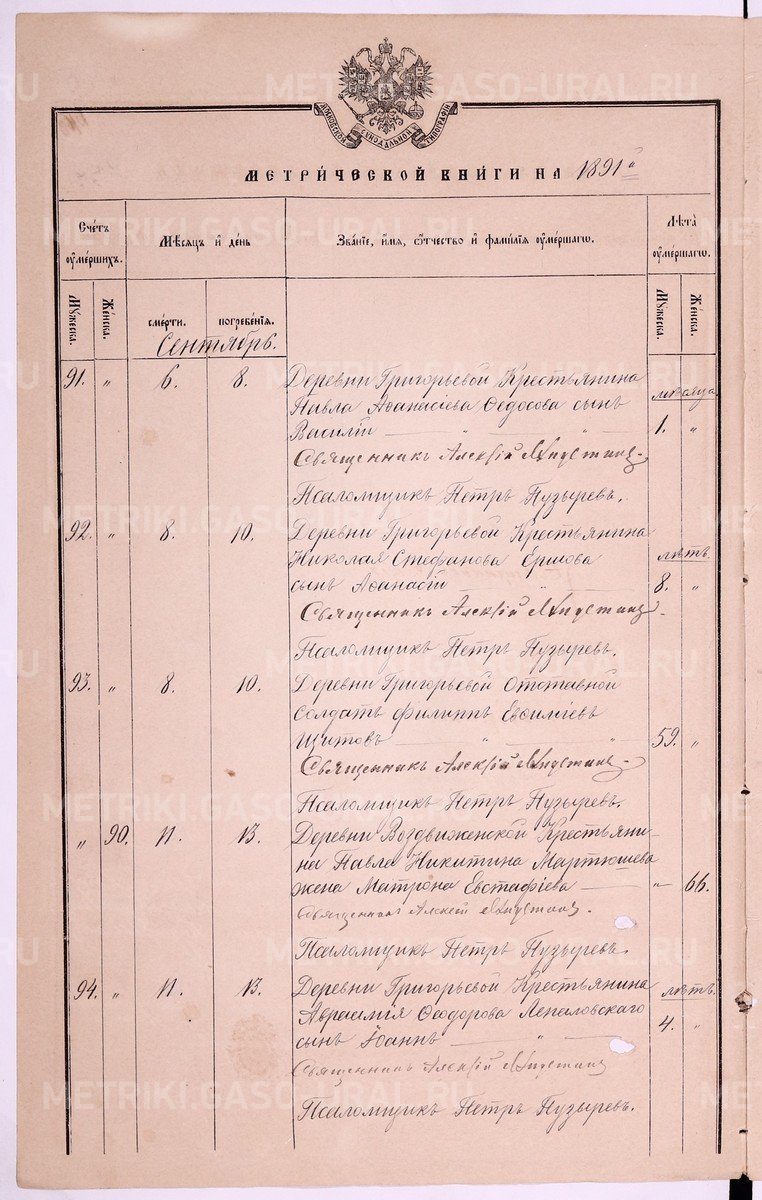 МОСКОВСКОЙ СИНОДАЛЬНОЙ ТИПОГРАФІИ
МЕТРИ́ЧЕСКОЙ КНИ́ГИ НА 1891й
Сче́тъ ᲂу҆ме́ршихъ.
Мѣ́сяцъ и҆ де́нь
Зва́нїе, и҆́мя, ѻ҆́тчество и҆ фами́лїя ᲂу҆ме́ршагѡ.
Лѣ́та ᲂу҆ме́ршагѡ.
Мꙋ́жеска.
Же́нска.
сме́рти.
погребе́нїя.
Мꙋ́жеска.
Же́нска.
Сентябрь.
91. " 6. 8. Деревни Григорьевой Крестьянина
Павла Аѳанасіева Ѳедосова сынъ
мѣсяца
Василій " " 1. "
Священникъ Алексій
Псаломщикъ Петръ Пузыревъ.
92. " 8. 10. Деревни Григорьевой Крестьянина
Николая Стефанова Ершова
лѣтъ.
сынъ Аѳанасій " 8. "
Священникъ Алексій
Псаломщикъ Петръ Пузыревъ.
93. " 8. 10. Деревни Григорьевой Отставной
Солдатъ Филиппъ Евѳиміевъ
Щитовъ " " 59. "
Священникъ Алексій
Псаломщикъ Петръ Пузыревъ.
" 90. 11. 13. Деревни Воздвиженской Крестьяни-
на Павла Никитина Мартюшева
жена Матрона Евстафіева " 66.
Священникъ Алексій
Псаломщикъ Петръ Пузыревъ.
94. " 11. 13. Деревни Григорьевой Крестьянина
лѣтъ.
Авраамія Ѳеодорова Лепаловскаго
сынъ Іоаннъ " 4. "
Священникъ Алексій
Псаломщикъ Петръ Пузыревъ.
METRIKI.GASO-URAL.RU